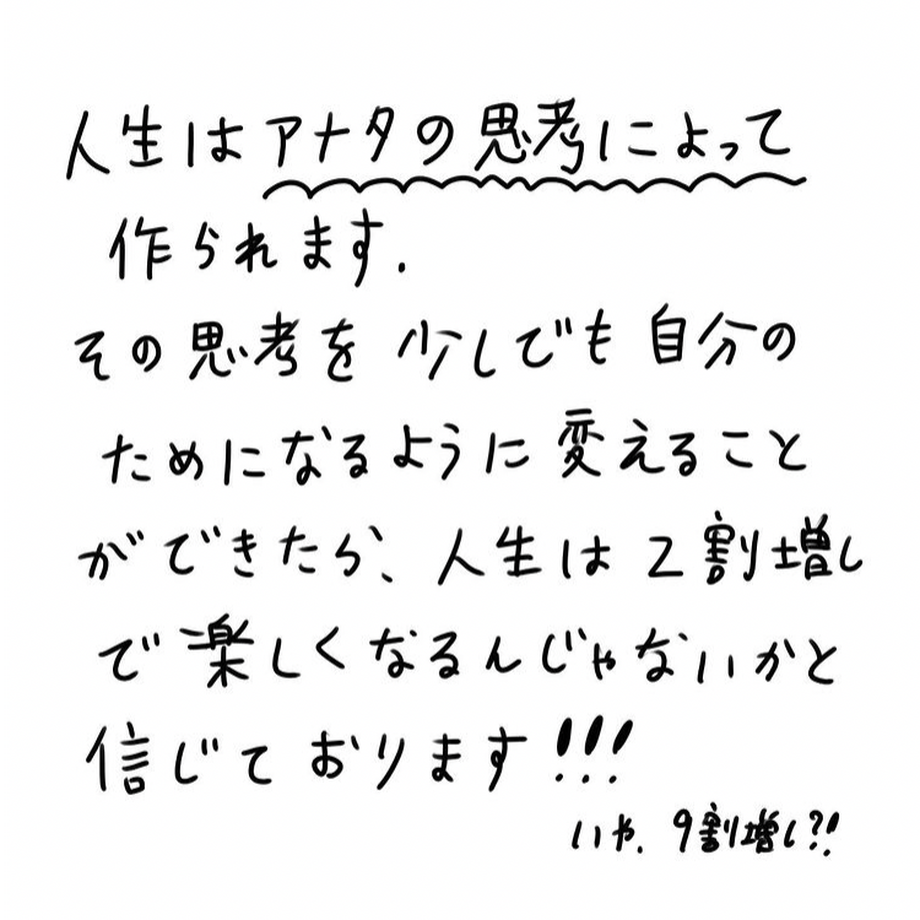 人生はアナタの思考によって
作られます.
その思考を少しでも自分の
ためになるように変えること
ができたら、人生は2割増し
で楽しくなるんじゃないかと
信じております!!!
いや、9割増し?!